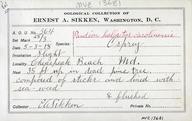 MVZ 13681
OOLOGICAL COLLECTION OF
ERNEST A. SIKKEN, WASHINGTON, D. C.
A. O. U. No. 364
Pandion haliaetus carolinensis
SET
Osprey
DATE 5-3-18
INCUBATION Slight
Chesapeake Beach Md.
35 ft up in dead pine tree.
composed of sticks and lined with
sea-weed
& flushed
EASikken
MVZ 13681